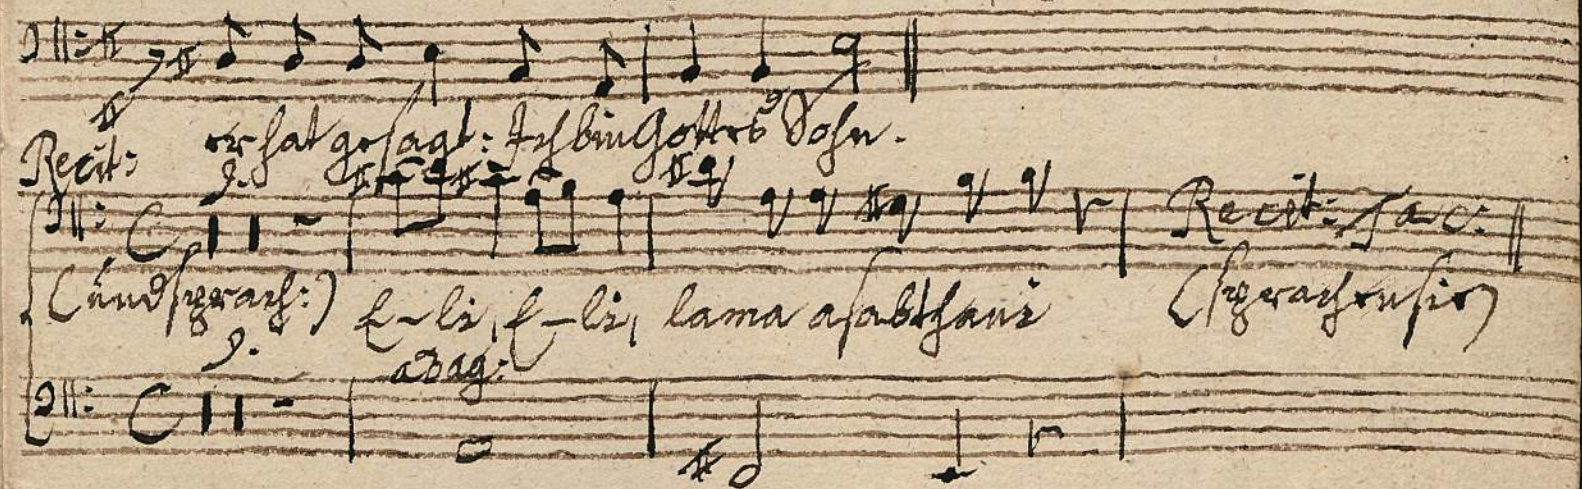 er hat gesagt: Ich bin Gottes Sohn.
Recit:
9.
Recit: tac:
(und sprach:) E-li, E-li, lama asabthani (sprachen sie)
9.
adag: